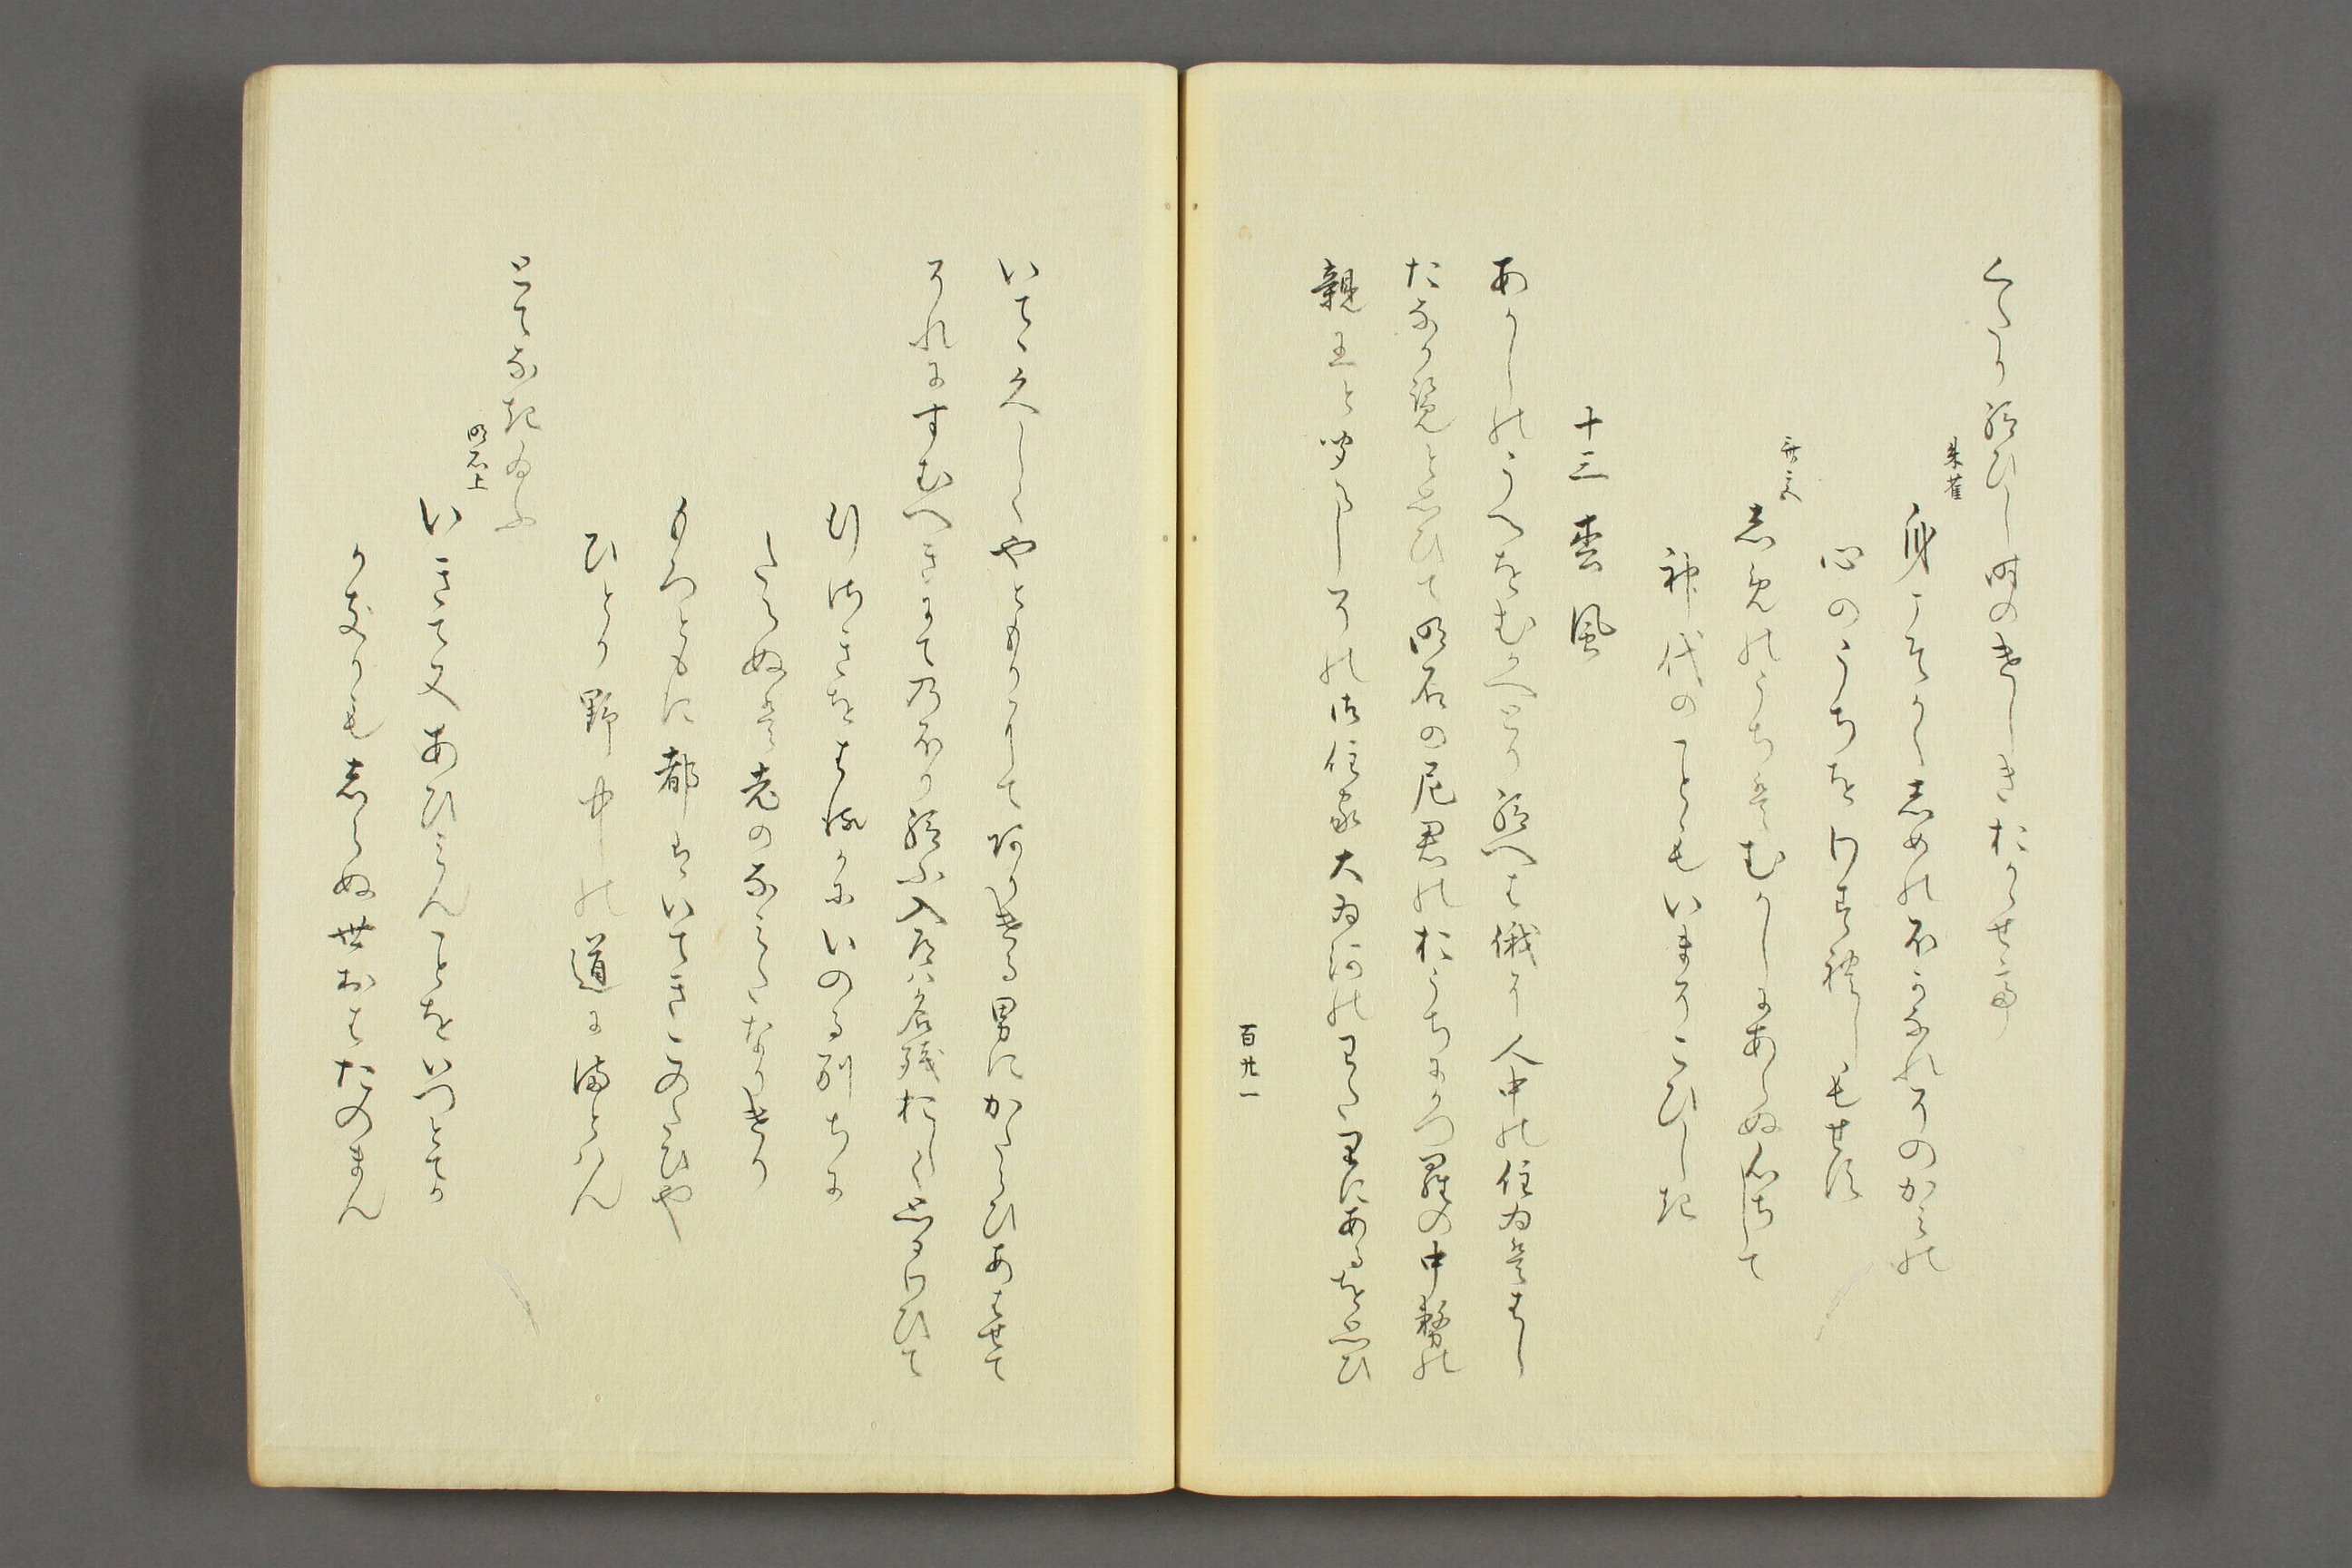 くたり給ひし時のきしきおほせて
朱雀
身こそかくしめのほかなれそのかみの
心のうちをわすれしもせす
斎宮
しめのうちはむかしにあらぬ心ちして
神代のこともいまそこひしき
十三 松風
あかしのうへをむかへとり給へき俄に人中の住ゐははし
たなからんと思ひて明石の尼君のおうちにかつらの中務の
親王と聞えしそれの御住家大ゐ河のわたりにあるを思ひ
百廿一
いてゝ久しくやともりして有ける男にかたらひあはせて
それにすむへきにてのほり給ふ入道は名残おしく思ひわひて
行さきをはるかにいのる別ちに
たえぬは老のなみたなりけり
もろともに都はいてきこのたひや
ひとり野中の道にまとはん
とてなき給ふ
明石上
いきて又あひみんことをいつとてか
かきりもしらぬ世をはたのまん